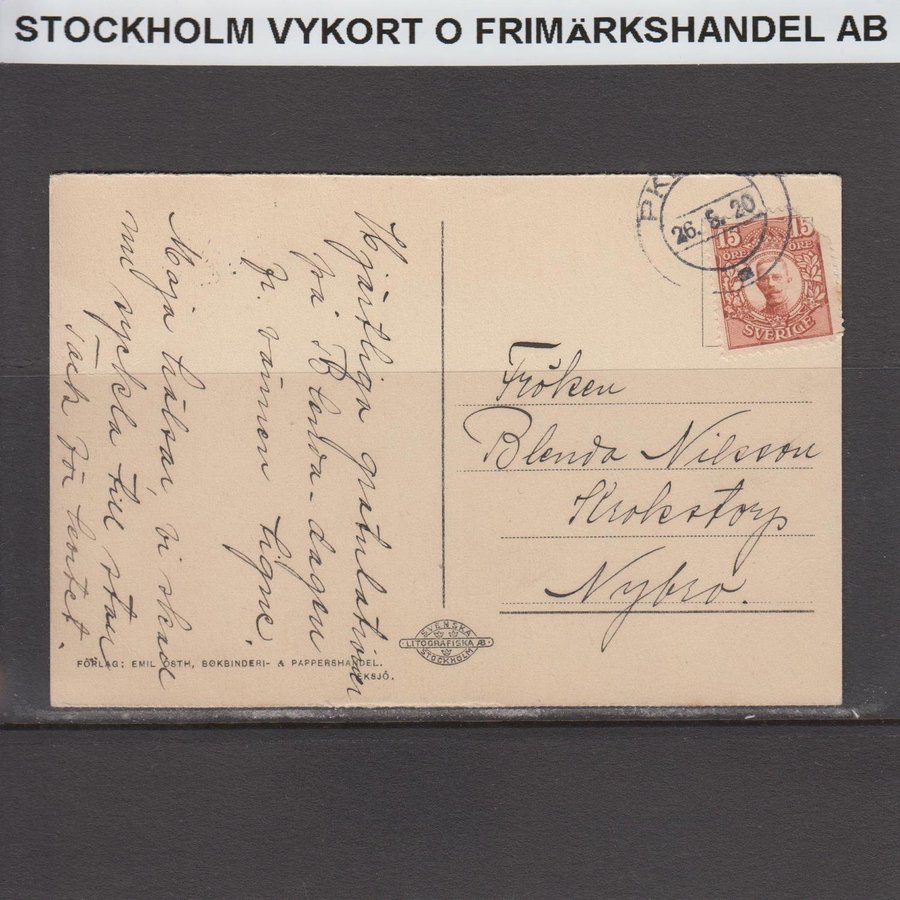 STOCKHOLM VYKORT O FRIMäRKSHANDEL AB
26. 5. 20
15 15
ÖRE ÖRE
SVERIGE
Hjärtliga gratulationer
på Blenda-dagen
fr. vännen Signe.
Maja hälsar, vi skall
nu cyckla till stan
Tack för kortet.
Fröken
Blenda Nilsson
Krokstorp
Nybro.
SVENSKA
LITOGRAFISKA AB.
STOCKHOLM
FÖRLAG: EMIL ÖSTH, BOKBINDERI- & PAPPERSHANDEL.
EKSJÖ.